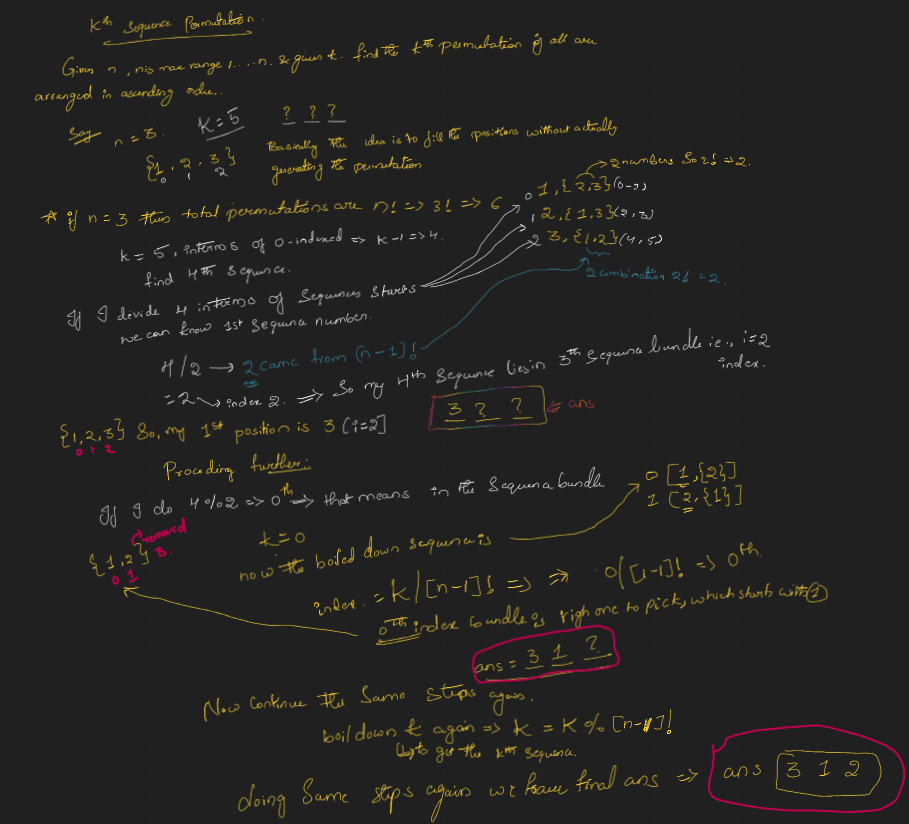 Kth Sequence Permutation.
Given n, n is nae range 1....n. & given k. find the kth permutation if all are
arranged in ascending order..
Say n = 3. K = 5 ? ? ?
{1, 2, 3}
0 1 2
Basically the idea is to fill the positions without actually
generating the permutation
→ 2 numbers so 2! => 2.
0 1, {2,3} (0-1)
1 2, {1,3} (2,3)
2 3, {1,2} (4,5)
2 combination 2! = 2.
* if n = 3 then total permutations are n! => 3! => 6
k = 5, interms of 0-indexed => k-1 => 4.
find 4th sequence.
If I divide 4 interms of sequences starts
we can know 1st sequence number.
4/2 → 2 came from (n-1)!
= 2 → index 2. => So my 4th Sequence lies in 3th sequence bundle i.e., i=2
index.
{1,2,3} So, my 1st position is 3 (i=2]
0 1 2
3 ? ? ⇐ ans
Proceding further:
If I do 4 % 2 => 0th => that means in the sequence bundle
0 [1,{2}]
1 [2,{1}]
removed
3.
{1,2}
0 1
k = 0
now the boiled down sequence is
index = k/[n-1]! => => 0/[1-1]! => 0th.
0th index bundle is righ one to pick, which starts with 1
ans = 3 1 ?
Now continue the same steps again.
boil down k again => k = K % [n-1]!
↳ to get the kth sequence.
doing Same steps again we have final ans => ans 3 1 2